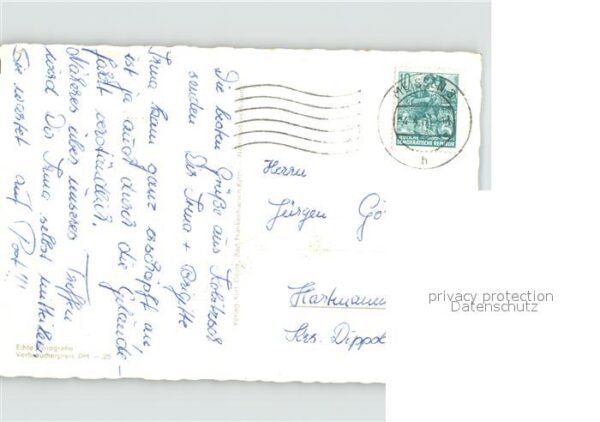 Die besten Grüße aus
senden Dir Irma + Brigitte
Irma kam ganz erschöpft an
ist ja auch durch die Gelände-
fahrt verständlich.
Näheres über unseres Treffen
wird Dir Irma selbst mitteilen
Sie wartet auf Post!!!
Echte Fotografie
Verbraucherpreis DM -.25
10
DEUTSCHE
DEMOKRATISCHE REPUBLIK
h
Herrn
Jürgen Gö
Hartmann
Krs. Dippol
privacy protection
Datenschutz